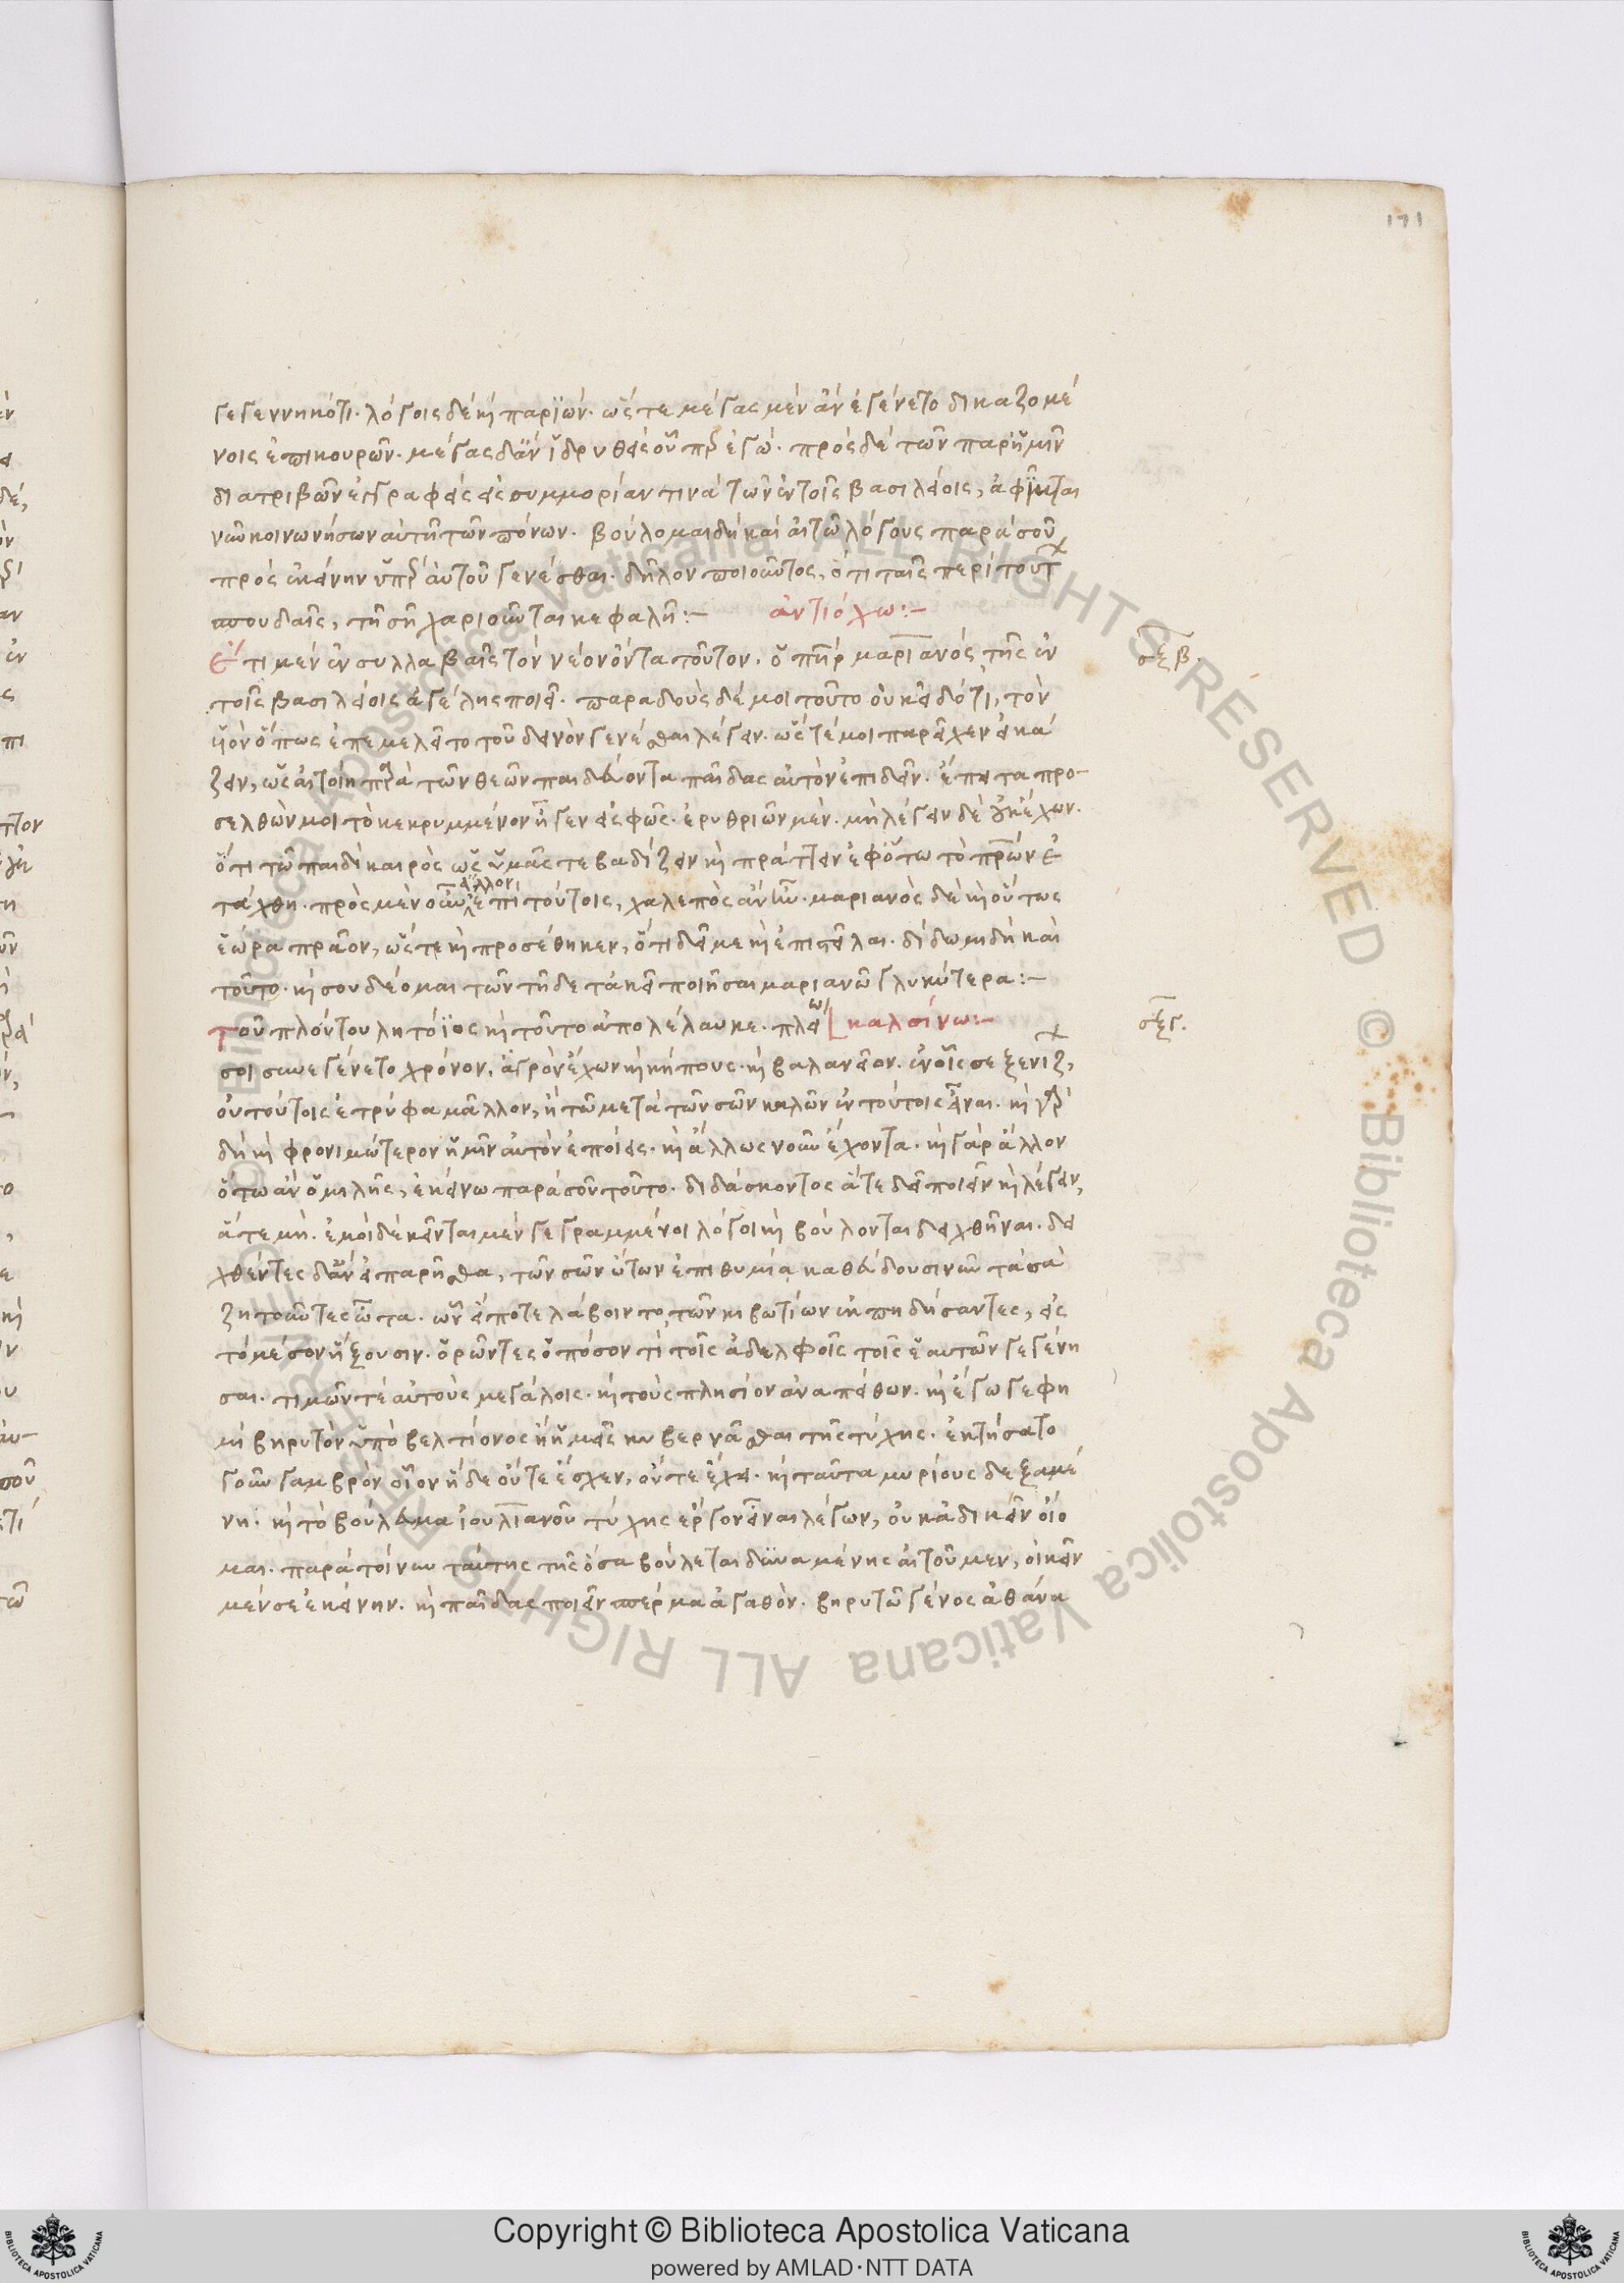 171
γεγεννηκότι. λόγοις δὲ κὶ παριών. ὥστε μέγας μὲν ἂν ἐγένετο δικαζομέ
νοις ἐπικουρῶν. μέγας δἂν ἱδρυθεὶς οὗπερ ἐγώ. πρὸς δὲ τῶν παρ ἡμῖν
διατριβῶν ἐγγραφεὶς εἰς συμμορίαν τινὰ τῶν ἐν τοῖς βασιλείοις, ἀφῖκται
νῦν κοινωνήσων αὐτῆ τῶν πόνων. βούλομαι δὴ καὶ αἰτῶ λόγους παρὰ σοῦ
πρὸς ἐκείνην ὑπὲρ αὐτοῦ γενέσθαι. δῆλον ποιοῦντος, ὅτι ταῖς περὶ τοῦτ
σπουδαῖς, τῆ σῆ χαριοῦνται κεφαλῆ:— ἀντιόχω:—
Ἔτι μὲν ἐν συλλαβαῖς τὸν νέον ὄντα τοῦτον. ὁ πατὴρ μαριανὸς τῆς ἐν
σξβ.
τοῖς βασιλείοις ἀγέλης ποιεῖ. παραδοὺς δέ μοι τοῦτο οὐκ εἰδότι, τὸν
υἱὸν ὅπως ἐπεμελεῖτο τοῦ δεινὸν γενέσθαι λέγειν. ὥστέ μοι παρεῖχεν εἰκά
ζειν, ὡς αἰτοίη παρὰ τῶν θεῶν παιδεύοντα παῖδας αὐτὸν ἐπιδεῖν. ἔπειτα προ-
σελθὼν μοι τὸ κεκρυμμένον ἦγεν εἰς φῶς. ἐρυθριῶν μὲν. μὴ λέγειν δὲ οὐκ ἔχων.
ὅτι τῶ παιδὶ καιρὸς ὡς ὑμᾶς τε βαδίζειν κὶ πράττειν ἐφ ὅτω τὸ πρῶην ἐ
τάχθη. πρὸς μὲν οὖν ἄλλον ἐπὶ τούτοις, χαλεπὸς ἂν ἦν. μαριανὸς δὲ κὶ οὕτως
ἑώρα πρᾶον, ὥστε κὶ προσέθηκεν, ὅτι δεῖ με κὶ ἐπιστεῖλαι. δίδωμι δὴ καὶ
τοῦτο. κὶ σου δέομαι τῶν τῆδε τἀκεῖ ποιῆσαι μαριανῶ γλυκύτερα:—
Τοῦ πλούτου λητόϊος κὶ τοῦτο ἀπολέλαυκε. πλείω καλσίνω:—
σξγ.
σοι συνεγένετο χρόνον. ἀγρὸν ἔχων κὶ κήπους. κὶ βαλανεῖον. ἐν οἷς σε ξενίζ,
οὐ τούτοις ἐτρύφα μᾶλλον, ἢ τῶ μετὰ τῶν σῶν καλῶν ἐν τούτοις εἶναι. κὶ γὰρ
δὴ κὶ φρονιμώτερον ἡμῖν αὐτὸν ἐποίεις. κὶ ἄλλως νοῦν ἔχοντα. κὶ γὰρ ἄλλον
ὅτω ἂν ὁμιλῆς, ἐκείνω παρὰ σοῦ τοῦτο. διδάσκοντος ἅτε δεῖ ποιεῖν κὶ λέγειν,
ἅτε μή. ἐμοὶ δὲ κεῖνται μὲν γεγραμμένοι λόγοι κὶ βούλονται δειχθῆναι. δει
χθέντες δἂν εἰ παρῆσθα, τῶν σῶν ὤτων ἐπιθυμία καθεύδουσι νῦν τὰ σὰ
ζητοῦντες ὦτα. ὧν εἴποτε λάβοιντο τῶν κιβωτίων ἐκπηδήσαντες, εἰς
τὸ μέσον ἥξουσιν. ὁρῶντες ὁπόσον τὶ τοῖς ἀδελφοῖς τοῖς ἑαυτῶν γεγένη
σαι. τιμῶν τε αὐτοὺς μεγάλοις. κὶ τοὺς πλησίον ἀναπείθων. κὶ ἔγωγε φη
μὶ βηρυτὸν ὑπὸ βελτίονος ἢ ἡμᾶς κυβερνᾶσθαι τῆς τύχης. ἐκτήσατο
γοῦν γαμβρὸν οἷον ἥδε οὔτε ἔσχεν, οὔτε ἔχει. κὶ ταῦτα μυρίους δεξαμέ
νη. κὶ τὸ βούλευμα ἰουλιανοῦ τύχης ἔργον εἶναι λέγων, οὐκ ἀδικεῖν οἴο
μαι. παρὰ τοίνυν ταύτης τῆς ὅσα βούλεται δυναμένης αἰτοῦμεν, οἰκεῖν
μέν σε ἐκείνην. κὶ παῖδας ποιεῖν σπέρμα ἀγαθὸν. βηρυτῶ γένος ἀθάνα